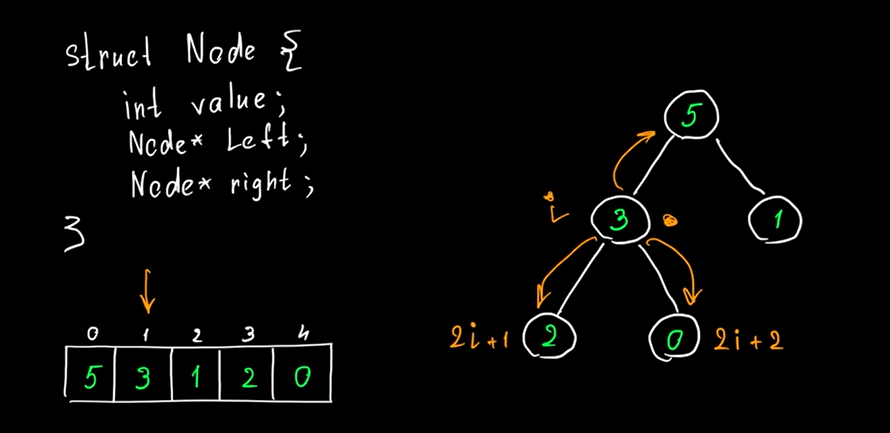 struct Node {
int value;
Node* Left;
Node* right;
}
0 1 2 3 4
5 3 1 2 0
5
i 3 1
2i+1 2 0 2i+2